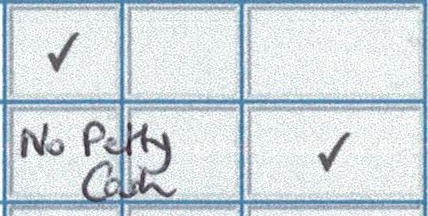 ✓
No Petty ✓
Cash